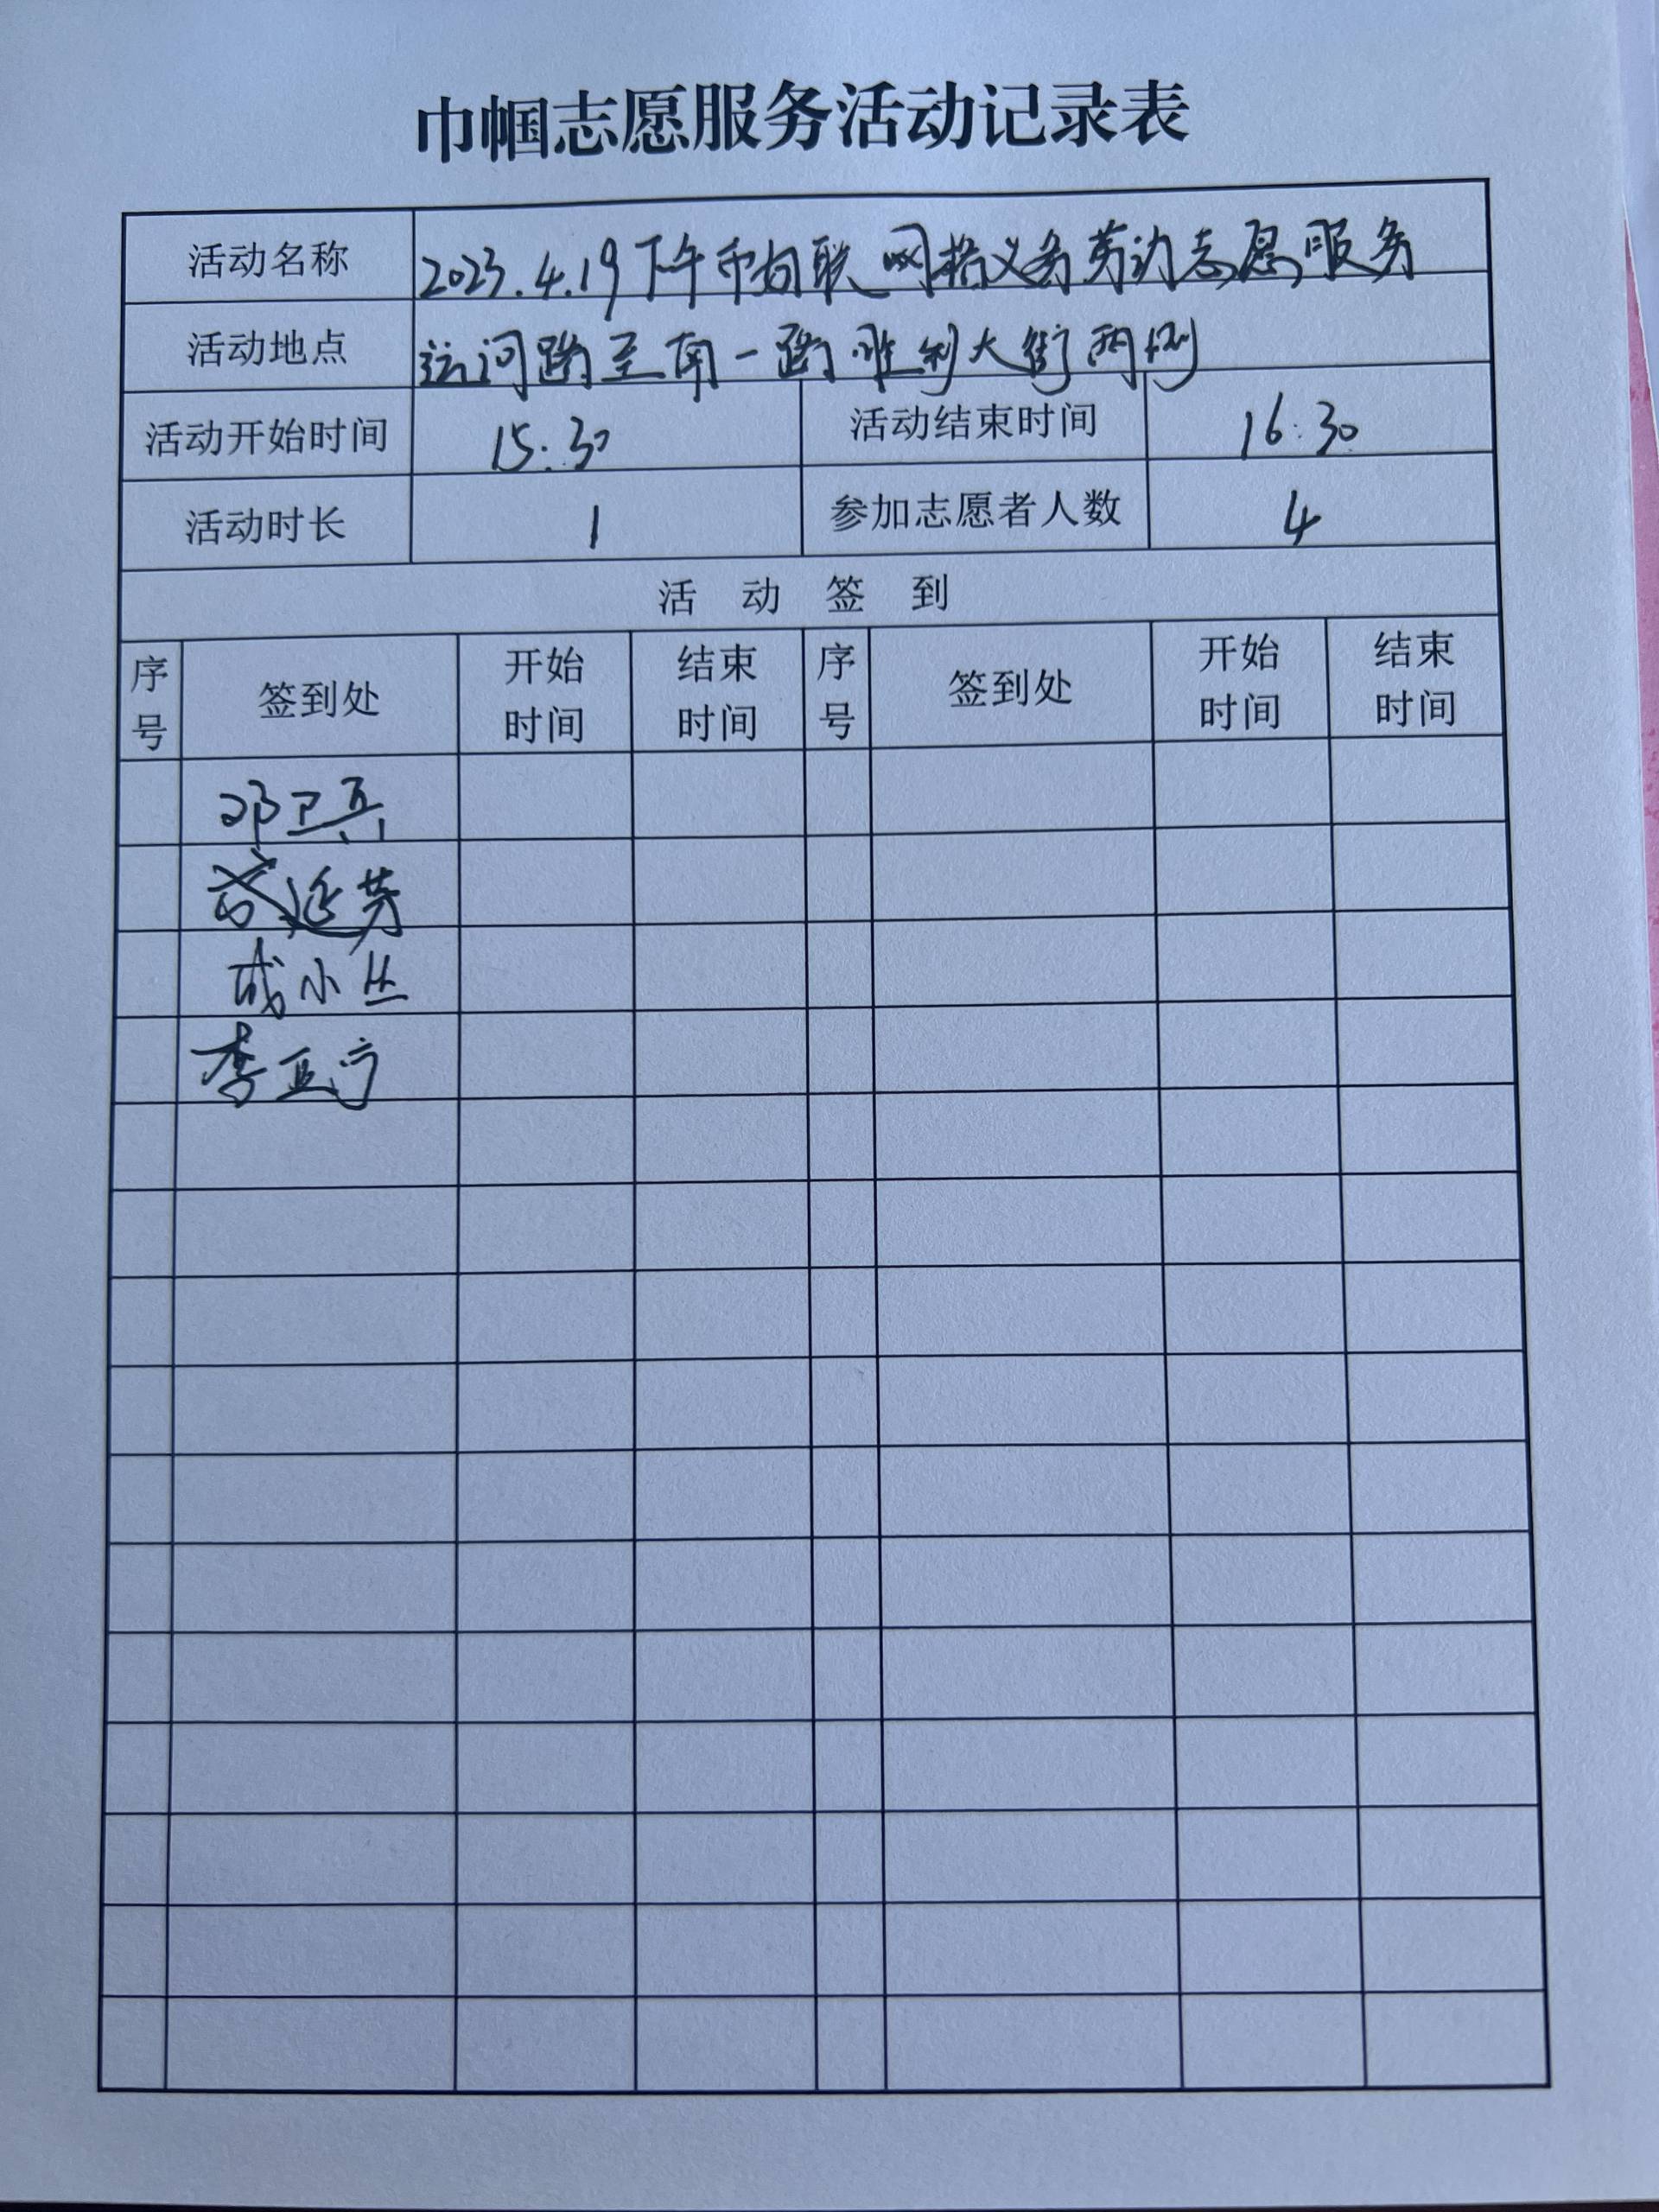 巾帼志愿服务活动记录表
活动名称 2023.4.19下午市妇联网格义务劳动志愿服务
活动地点 运河路至南一路胜利大街两侧
活动开始时间 15:30 活动结束时间 16:30
活动时长 1 参加志愿者人数 4
活动签到
序号 签到处 开始时间 结束时间 序号 签到处 开始时间 结束时间
邓卫兵
延芳
成小丛
李亚宁